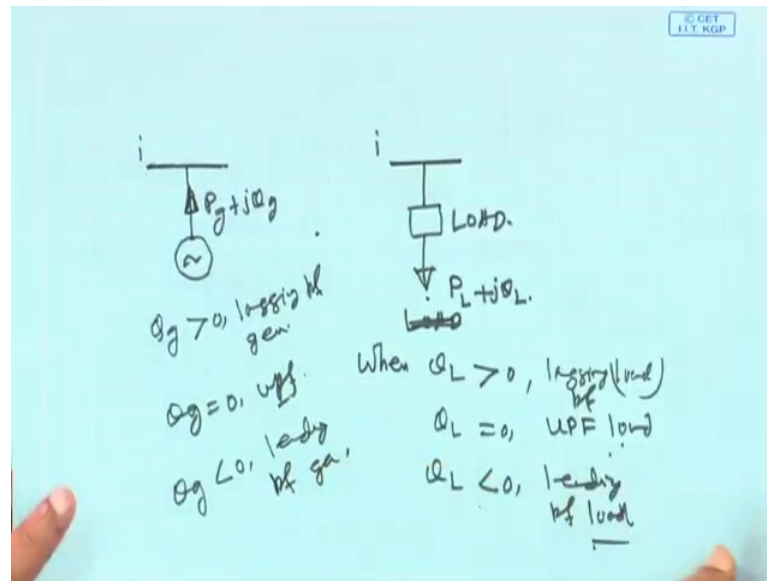 © CET
I.I.T. KGP
i
Pg+jQg
Qg >0, lagging pf
gen.
Qg=0, upf.
Qg <0, leading
pf gen,
i
LOAD.
PL+jQL.
LOAD
When QL >0, lagging (load)
pf
QL =0, UPF load
QL <0, leading
pf load